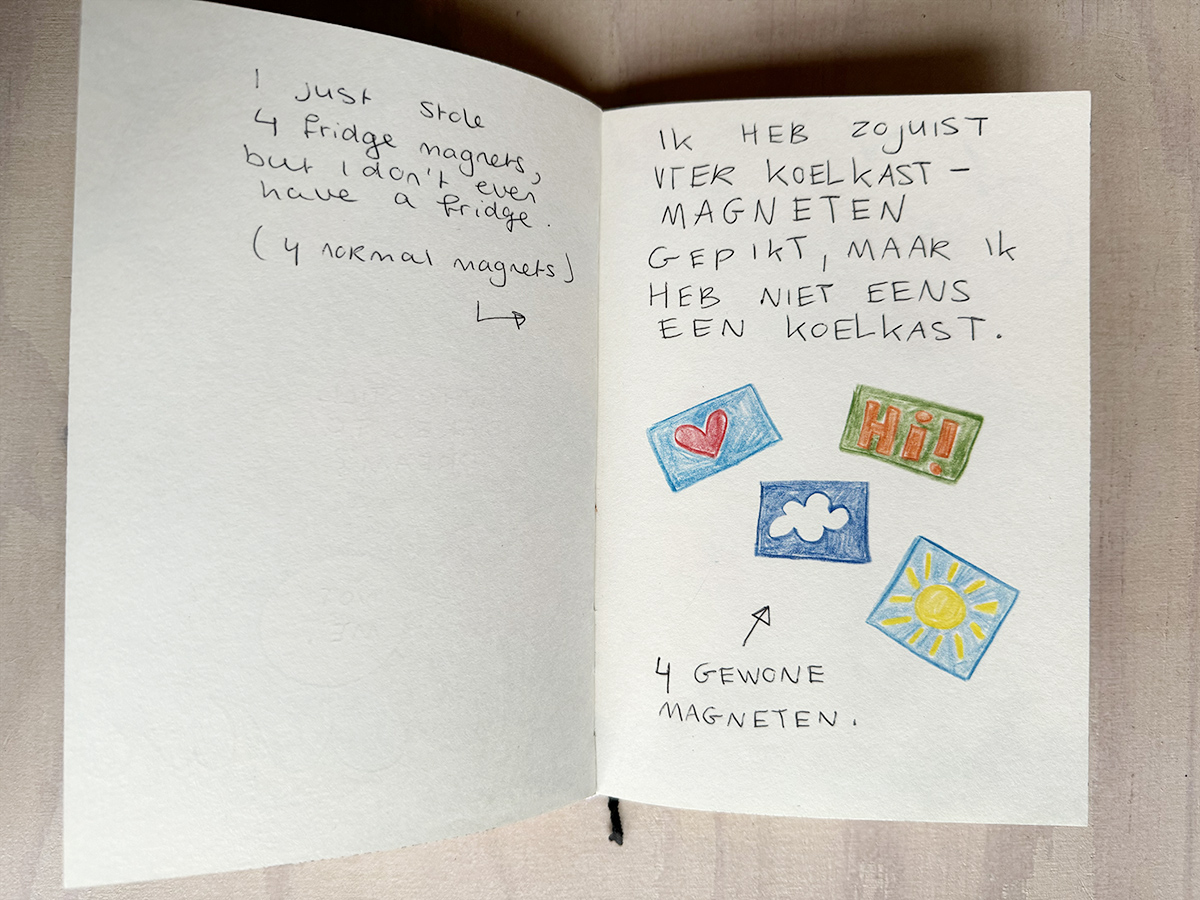 I just stole
4 fridge magnets,
but I don't even
have a fridge.
(4 normal magnets)
IK HEB ZOJUIST
VIER KOELKAST-
MAGNETEN
GEPIKT, MAAR IK
HEB NIET EENS
EEN KOELKAST.
Hi!
4 GEWONE
MAGNETEN.